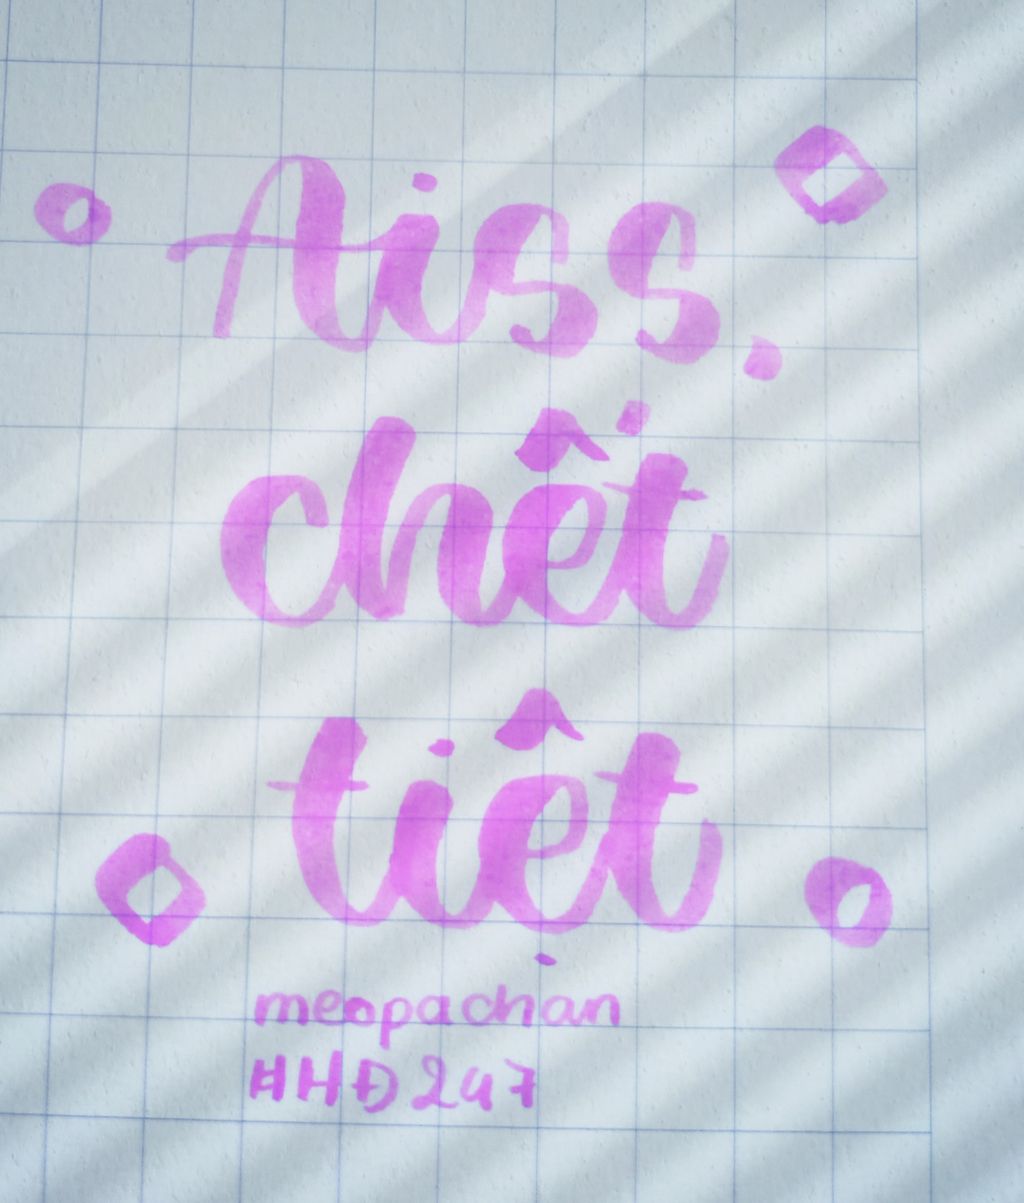 Aiss.
chết
tiệt
meopachan
#HĐ247